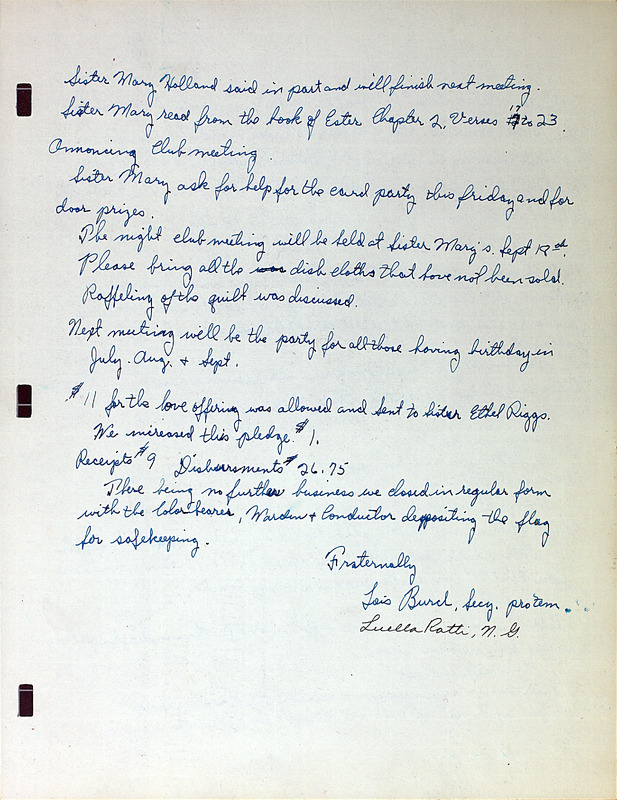 Sister Mary Holland said in part and will finish next meeting.
Sister Mary read from the book of Ester Chapter 2, Verses 17 to 23.
Annoncing Club meeting.
Sister Mary ask for help for the card party this friday and for
door prizes.
The night club meeting will be held at Sister Mary's. Sept
Please bring all the was dish cloths that have not been sold.
Raffeling of the quilt was discussed.
Next meeting will be the party for all those having birthday in
July. Aug. & Sept.
$11 for the love offering was allowed and sent to Sister Ethel Riggs.
We increased this pledge $1.
Receipts $9 Disbursments $26.75
There being no further business we closed in regular form
with the Color bearer, Warden & Conductor depositing the flag
for safekeeping.
Fraternally
Lois Burch, Secy. protem.
Luella Ratti, N. G.